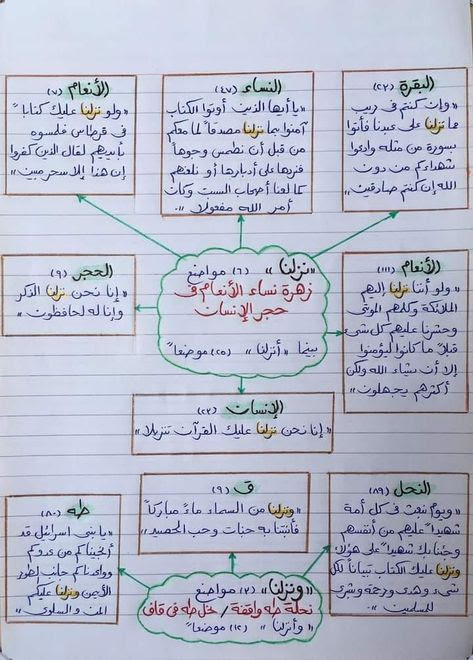 البقرة (٢٣)
"وإن كنتم في ريب
مما نزلنا على عبدنا فأتوا
بسورة من مثله وادعوا
شهداءكم من دون
الله إن كنتم صادقين"
النساء (٤٧)
"يا أيها الذين أوتوا الكتاب
آمنوا بما نزلنا مصدقاً لما معكم
من قبل أن نطمس وجوهاً
فنردها على أدبارها أو نلعنهم
كما لعنا أصحاب السبت وكان
أمر الله مفعولا"
الأنعام (٧)
"ولو نزلنا عليك كتاباً
في قرطاس فلمسوه
بأيديهم لقال الذين كفروا
إن هذا إلا سحر مبين"
الأنعام (١١١)
"ولو أننا نزلنا إليهم
الملائكة وكلمهم الموتى
وحشرنا عليهم كل شيء
قبلاً ما كانوا ليؤمنوا
إلا أن يشاء الله ولكن
أكثرهم يجهلون"
"نزلنا" (٦) مواضع
زهرة نساء الأنعام في
حجر الإنسان
بينما "أنزلنا" (٢٥) موضعاً
الحجر (٩)
"إنا نحن نزلنا الذكر
وإنا له لحافظون"
الإنسان (٢٣)
"إنا نحن نزلنا عليك القرآن تنزيلا"
النحل (٨٩)
"ويوم نبعث في كل أمة
شهيداً عليهم من أنفسهم
وجئنا بك شهيداً على هؤلاء
ونزلنا عليك الكتاب تبياناً لكل
شيء وهدى ورحمة وبشرى
للمسلمين"
ق (٩)
"ونزلنا من السماء ماءً مباركاً
فأنبتنا به جنات وحب الحصيد"
طه (٨٠)
"يا بني اسرائيل قد
أنجيناكم من عدوكم
وواعدناكم جانب الطور
الأيمن ونزلنا عليكم
المن والسلوى"
"ونزلنا" (٣) مواضع
نحلة طه واقفة / نحل طه في قاف
"وأنزلنا" (١٢) موضعاً